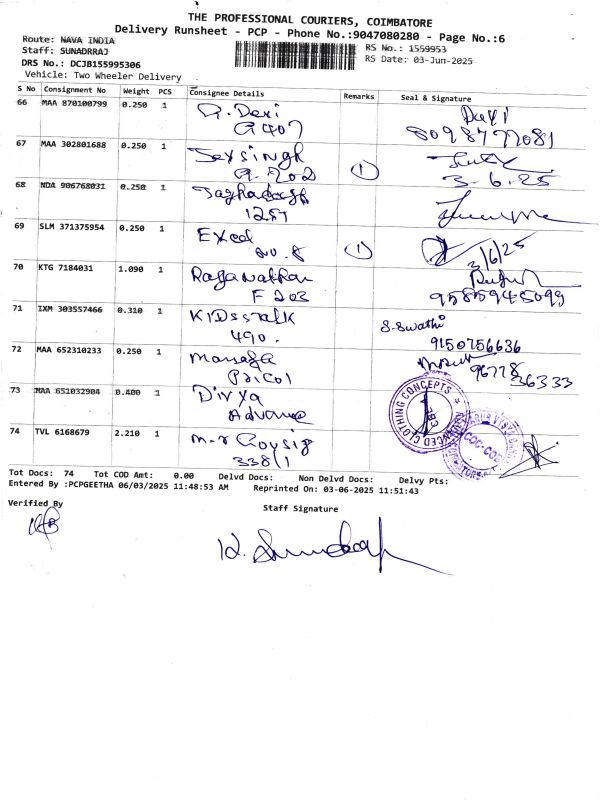 THE PROFESSIONAL COURIERS, COIMBATORE
Delivery Runsheet - PCP - Phone No.:9047080280 - Page No.:6
Route: NAVA INDIA
RS No.: 1559953
Staff: SUNADRRAJ
RS Date: 03-Jun-2025
DRS No.: DCJB155995306
Vehicle: Two Wheeler Delivery
S No Consignment No Weight PCS Consignee Details Remarks Seal & Signature
66 MAA 870100799 0.250 1 G. Devi
G 407 8098777081
67 MAA 302801688 0.250 1 Jaysingh 1
G. 202 3-6.25
68 NDA 906768031 0.250 1
1257
69 SLM 371375954 0.250 1 Exed 1
No. 8 3/6/25
70 KTG 7184031 1.090 1
F 203 9585945099
71 IXM 303557466 0.310 1 KIDSSTALK S.Swathi
490. 9150756636
72 MAA 652310233 0.250 1 96778
Pricol 36333
73 MAA 651032904 0.400 1 Divya
Advance
ADVANCED CLOTHING CONCEPTS
74 TVL 6168679 2.210 1
338/1
Tot Docs: 74 Tot COD Amt: 0.00 Delvd Docs: Non Delvd Docs: Delvy Pts:
Entered By :PCPGEETHA 06/03/2025 11:48:53 AM Reprinted On: 03-06-2025 11:51:43
Verified By Staff Signature